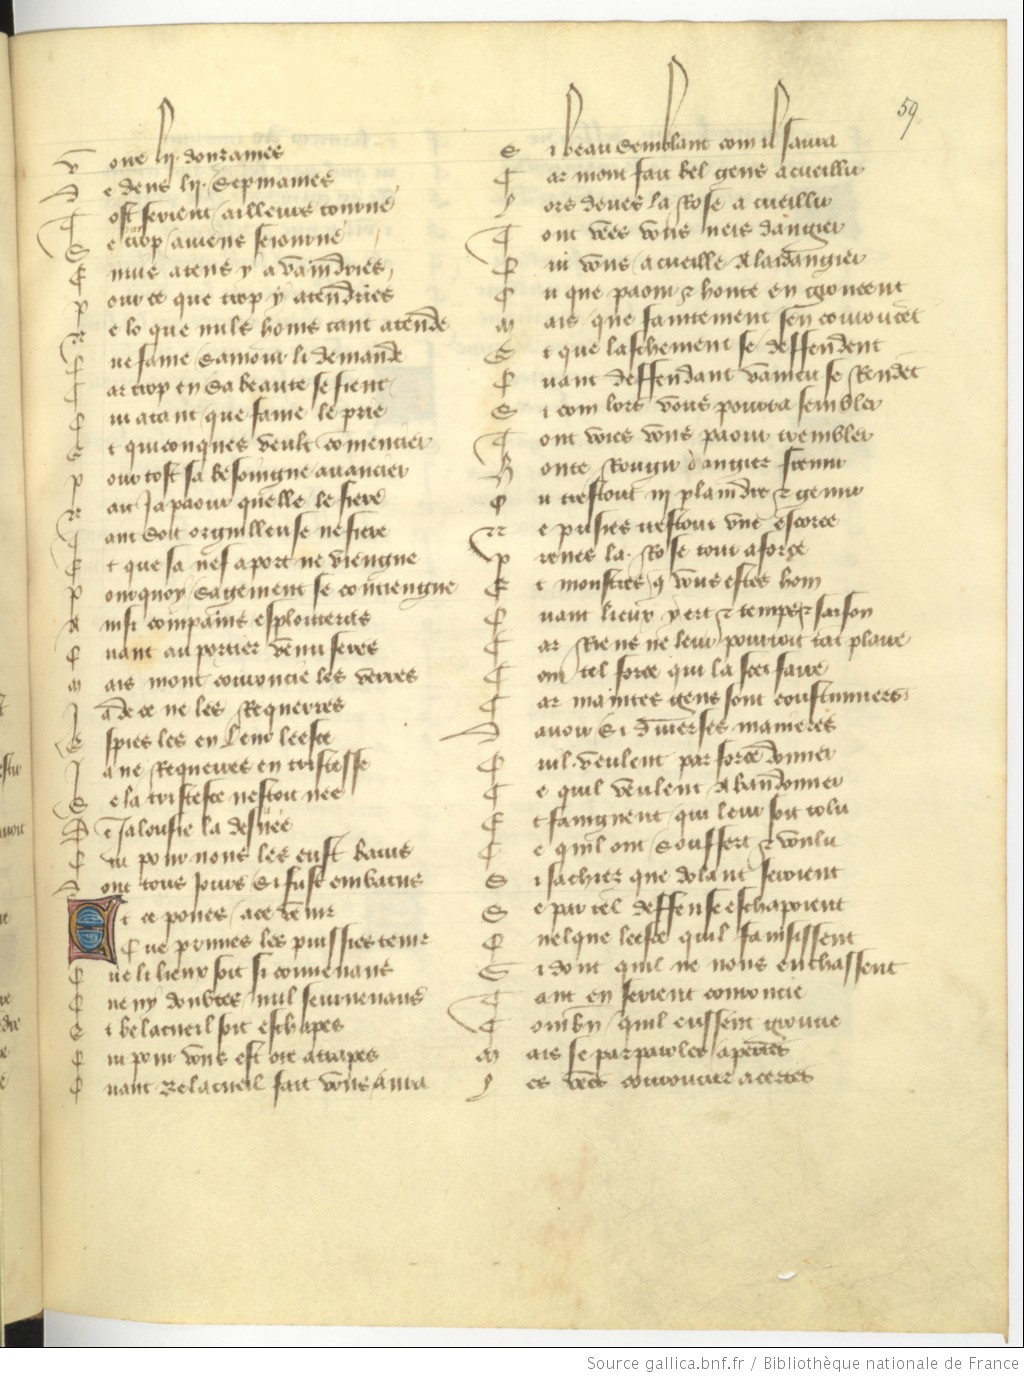 59
V oire .lij. donzaines
D e dens .lij. sepmaines
T ost seroient ailleurs tourne
S e trop aviens seiourne
C mue atens y a vaindries
P our ce que trop y atendries
R e lo que nuls homs tant atende
Q ue fame samour li demande
C ar trop en sa beaute se fient
Q ui atant que fame le prie
E t quiconques veult comencier
P our tost sa besoingne avancier
N ait ja paour quelle le fiere
T ant soit orguilleuse ne fiere
E t que sa nef a port ne viengne
P ourquoy sagement se contiengne
A insi compains esploiteras
Q uant au portier venu seres
M ais mont couroucie les verres
J a de ce ne les Requerres
E spies les en leur leesce
J a ne Requeres en tristesse
S e la tristesce nestoit nee
D e Jalousie la desuee
Q ui pour nous les eust batus
D ont tous jours si fust embatus
E t ce poues a ce venir
Q ue prives les puissies tenir
Q ue li lieux soit si convenans
Q ue ny doubtes nul seurvenans
E t belacueil soit eschapes
Q ui pour vous est ore atrapes
Q uant Belacueil fait vous aura
S i beau semblant com il saura
C ar mont fait bel gens acueillir
L ors deves la Rose a cueillir
T ont vees vous neis dangier
Q ui vous acueille a laidangier
O u que paour et honte en groucent
M ais que faintement sen couroucet
E t que laschement se deffendent
Q uant deffendant vaincu se Rendet
S i com lors vous pourra sembler
T ont voies vous paour trembler
H onte Rougir dangier fremir
O u trestout iij plaindre et gemir
N e prisies trestout une escorce
P renes la Rose tout a force
E t monstres que vous estes hom
Q uant lieux y ert et temps et saison
C ar Riens ne leur pourroit tat plaire
C om tel force qui la scet faire
C ar maintes gens sont coustumiers
D avoir si diverses manieres
Q uil veulent par force donner
C e quil veulent abandonner
E t faingnent qui leur soit tolu
C e quil ont souffert et voulu
S i sachiez que dolant seroient
S e par tel deffense eschapoient
Q uelque leesce quil fainsissent
S i dout quil ne nous en hassent
T ant en seroient couroucie
C ombien quil eussent groucie
M ais se par paroles apertes
L es vees couroucier acertes
Source gallica.bnf.fr / Bibliothèque nationale de France